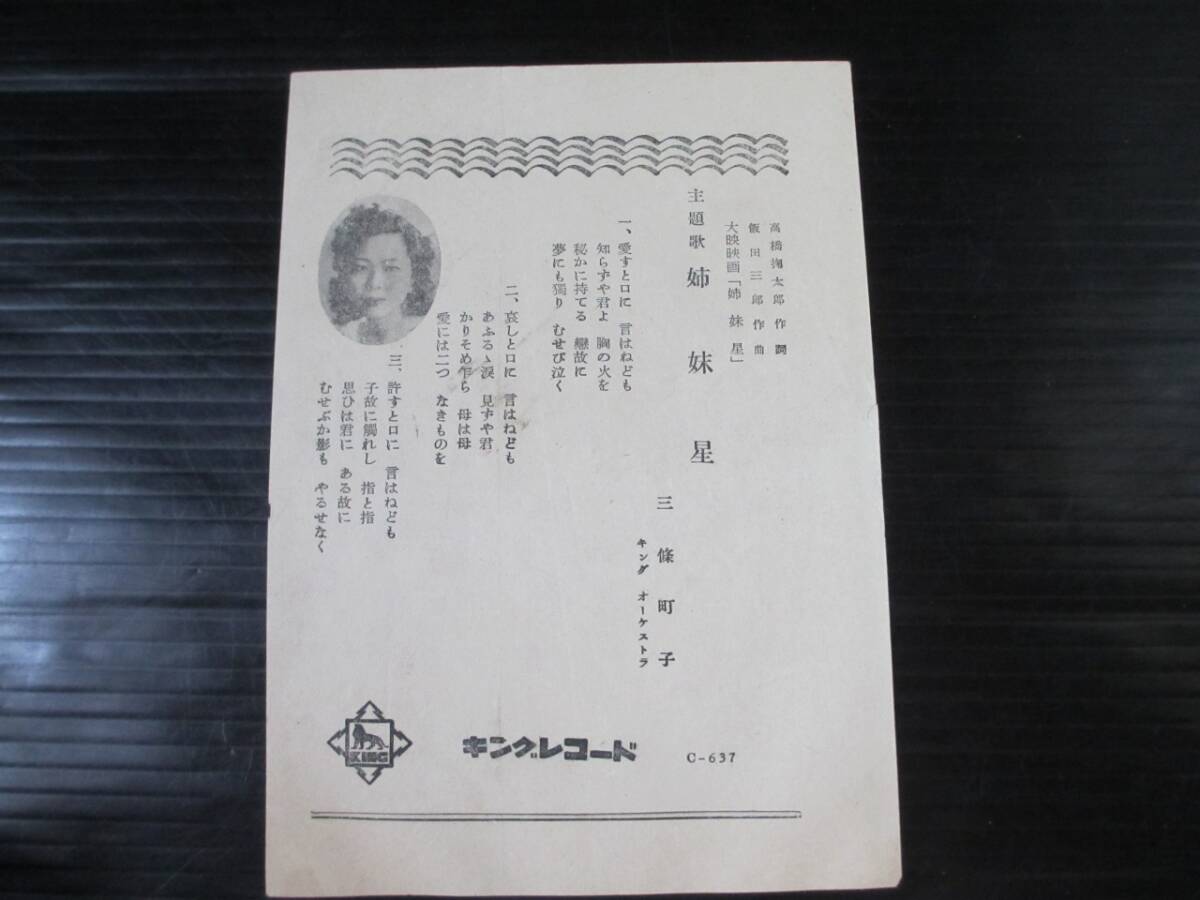 高橋掬太郎作詞
飯田三郎作曲
大映映画「姉妹星」
主題歌 姉妹星
三條町子
キング オーケストラ
一、愛すと口に 言はねども
知らずや君よ 胸の火を
秘かに持てる 戀故に
夢にも獨り むせび泣く
二、哀しと口に 言はねども
あふるゝ涙 見ずや君
かりそめ乍ら 母は母
愛には二つ なきものを
三、許すと口に 言はねども
子故に觸れし 指と指
思ひは君に ある故に
むせぶか影も やるせなく
KING
キングレコード
C-637